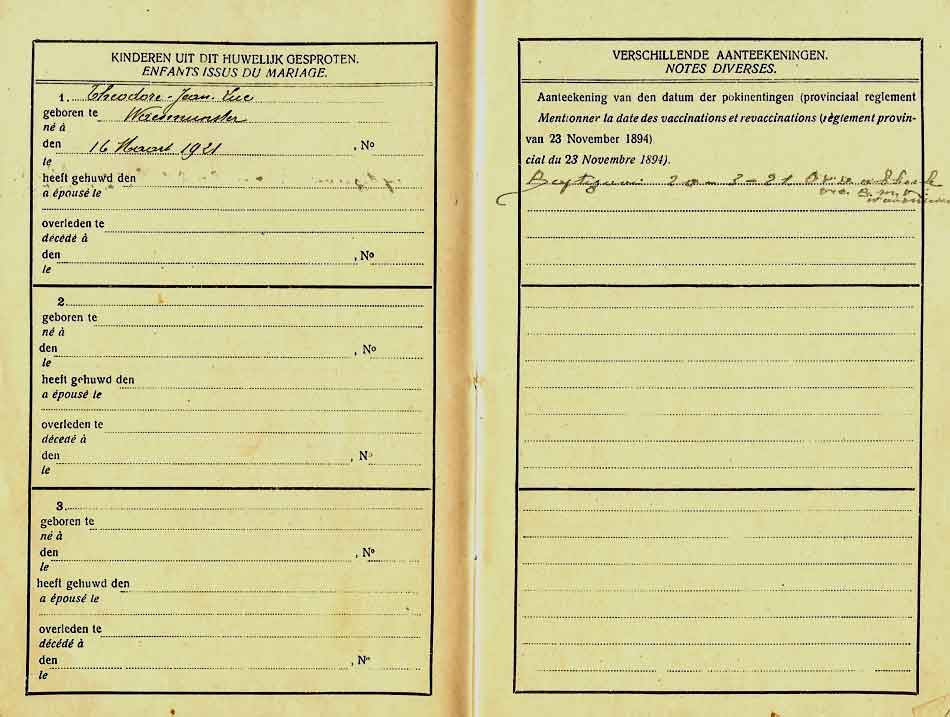 KINDEREN UIT DIT HUWELIJK GESPROTEN.
ENFANTS ISSUS DU MARIAGE.
1. Theodore-Jean-Luc
geboren te Waesmunster
né à
den 16 Maart 1921, No
le
heeft gehuwd den
a épousé le
overleden te
décédé à
den , No
le
2.
geboren te
né à
den , No
le
heeft gehuwd den
a épousé le
overleden te
décédé à
den , No
le
3.
geboren te
né à
den , No
le
heeft gehuwd den
a épousé le
overleden te
décédé à
den , No
le
VERSCHILLENDE AANTEEKENINGEN.
NOTES DIVERSES.
Aanteekening van den datum der pokinentingen (provinciaal reglement
Mentionner la date des vaccinations et revaccinations (règlement provin-
van 23 November 1894)
cial du 23 Novembre 1894).
20-3-21